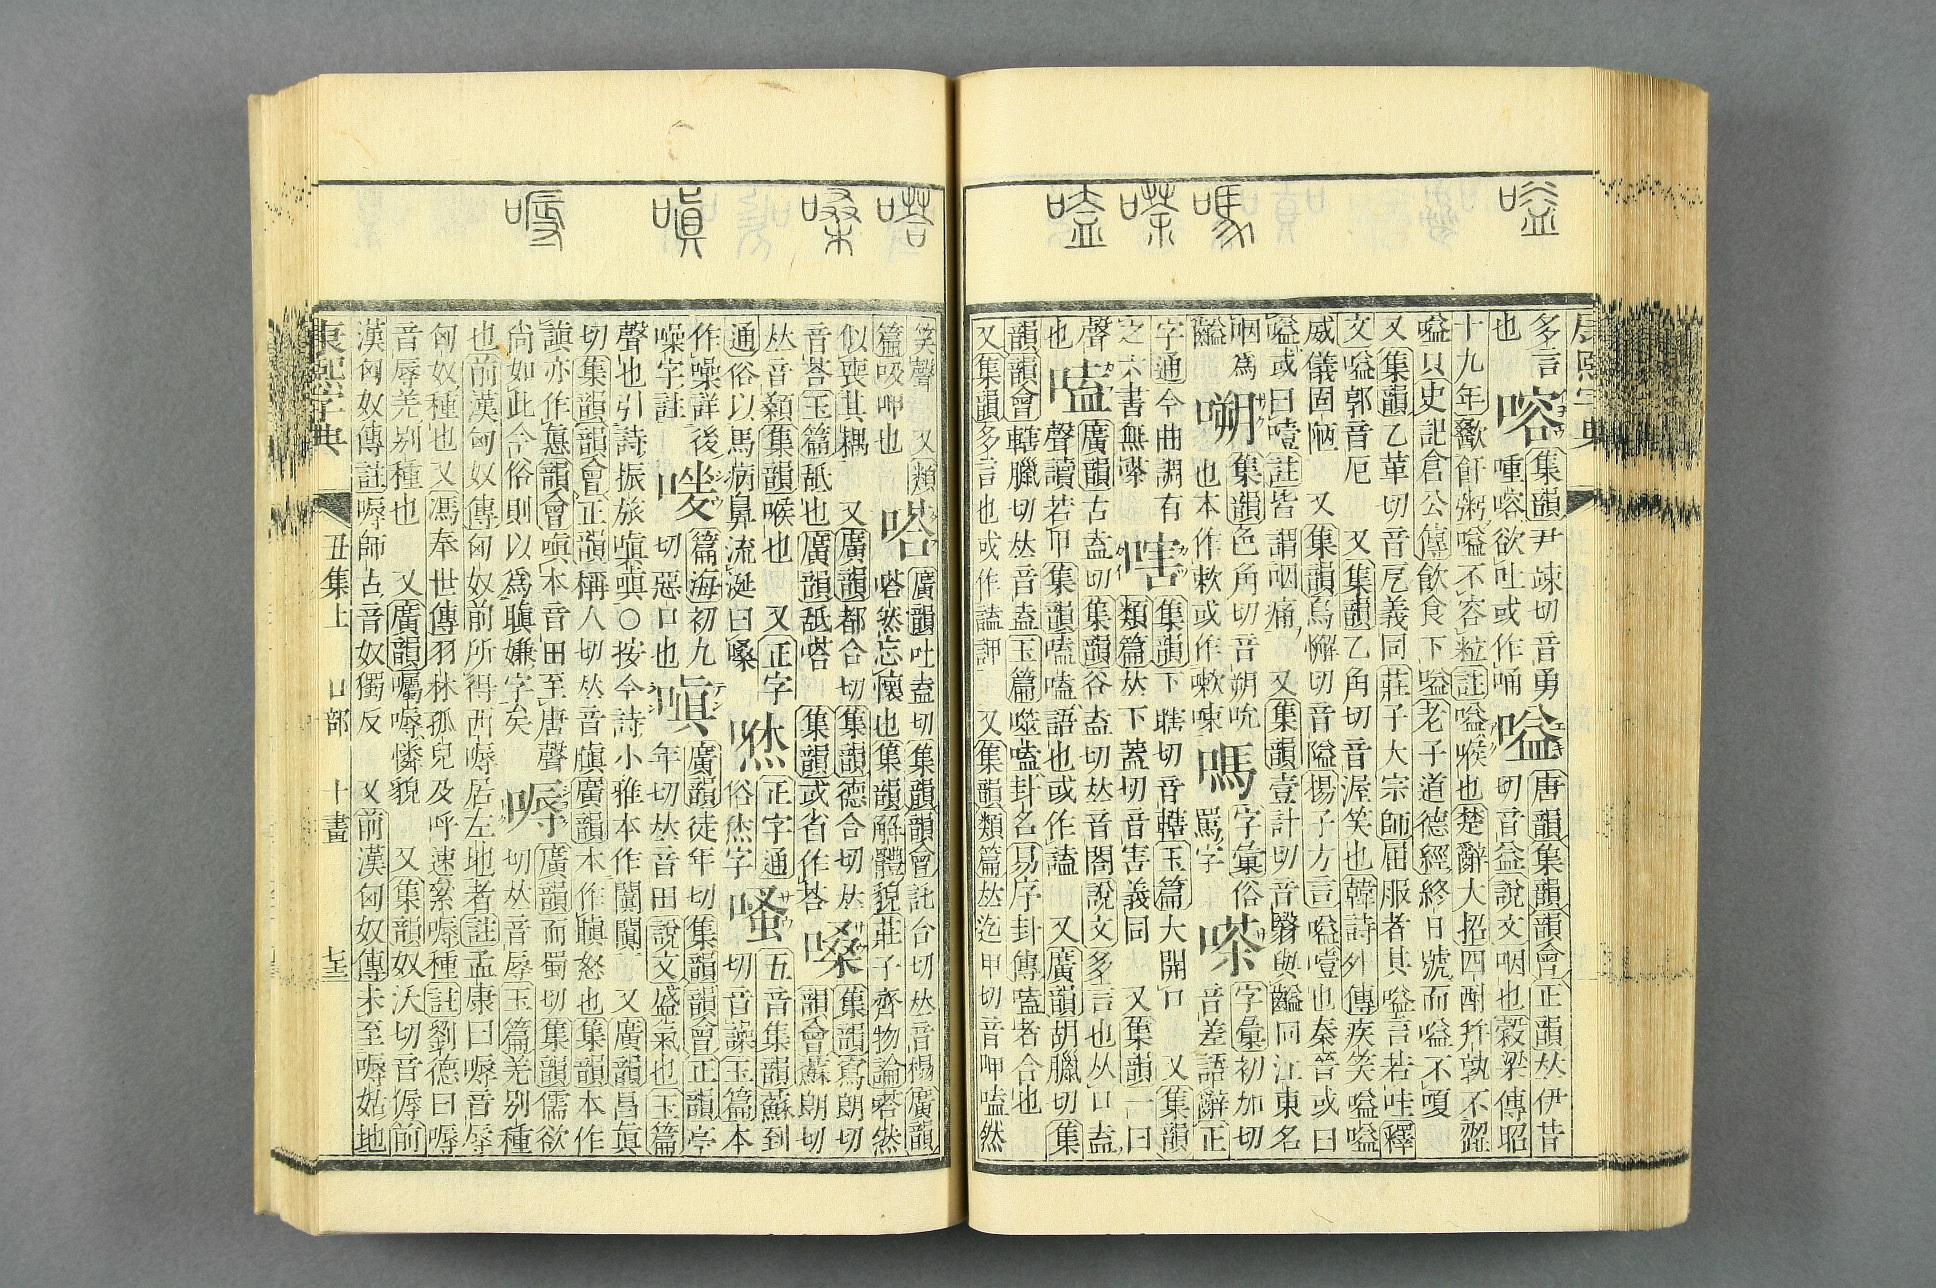 嗌
嗎
嗏
嗑
多言 嗂 集韻尹竦切音勇
也 㖶嗂欲吐或作嗵 嗌 唐韻集韻韻會正韻𠀤伊昔
切音益說文咽也穀梁傳昭
十九年歠飦粥嗌不容粒註嗌喉也楚辭大招四酎幷孰不歰
嗌只史記倉公傳飮食下嗌老子道德經終日號而嗌不嗄
又集韻乙革切音戹義同莊子大宗師屈服者其嗌言若哇釋
文嗌郭音厄 又集韻乙角切音渥笑也韓詩外傳疾笑嗌嗌
威儀固陋 又集韻烏懈切音隘揚子方言嗌噎也秦晉或曰
嗌或曰噎註皆謂咽痛 又集韻壹計切音翳與齸同江東名
咽爲齸 嗍 集韻色角切音朔吮也本作欶或作嗽㖻 嗎 字彙俗罵字 嗏 字彙初加切音差語辭正
字通今曲調有之六書無嗏 嗐 集韻下瞎切音轄玉篇大開口 又集韻
類篇𠀤下蓋切音害義同 又集韻一曰
聲也 嗑 廣韻古盍切集韻谷盍切𠀤音閤說文多言也从口盍
聲讀若甲集韻嗑嗑語也或作譗 又廣韻胡臘切集
韻韻會轄臘切𠀤音盍玉篇噬嗑卦名易序卦傳嗑者合也
又集韻多言也或作譗䛅 又集韻類篇𠀤迄甲切音呷嗑然
嗒
嗓
嗔
嗕
笑聲 又類篇吸呷也 嗒 廣韻吐盍切集韻韻會託合切𠀤音榻廣韻
嗒然忘懷也集韻解體貌莊子齊物論嗒然
似喪其耦 又廣韻都合切集韻德合切𠀤音荅玉篇舐也廣韻舐嗒 集韻或省作荅 嗓 集韻寫朗切韻會蘇朗切
𠀤音顙集韻喉也 又正字通俗以馬病鼻流涎曰嗓 㷊 正字通俗㷊字 嗓 五音集韻蘇到切音譟玉篇本
作噪詳後噪字註 㖩 篇海初九切惡口也 嗔 廣韻徒年切集韻韻會正韻亭
年切𠀤音田說文盛氣也玉篇
聲也引詩振旅嗔嗔○按今詩小雅本作闐闐 又廣韻昌眞
切集韻韻會正韻稱人切𠀤音瞋廣韻本作瞋怒也集韻本作
謓亦作𢠵韻會嗔本音田至唐聲
尚如此今俗則以爲瞋嫌字矣 嗕 廣韻而蜀切集韻儒欲切𠀤音辱玉篇羌别種
也前漢匈奴傳匈奴前所得西嗕居左地者註孟康曰嗕音辱
匈奴種也又馮奉世傳羽林孤兒及呼速絫嗕種註劉德曰嗕
音辱羌别種也 又廣韻囑嗕憐貌 又集韻奴沃切音傉前
漢匈奴傳註嗕師古音奴獨反 又前漢匈奴傳未至嗕姑地
康熙字典 丑集上 口部 十畫 七三